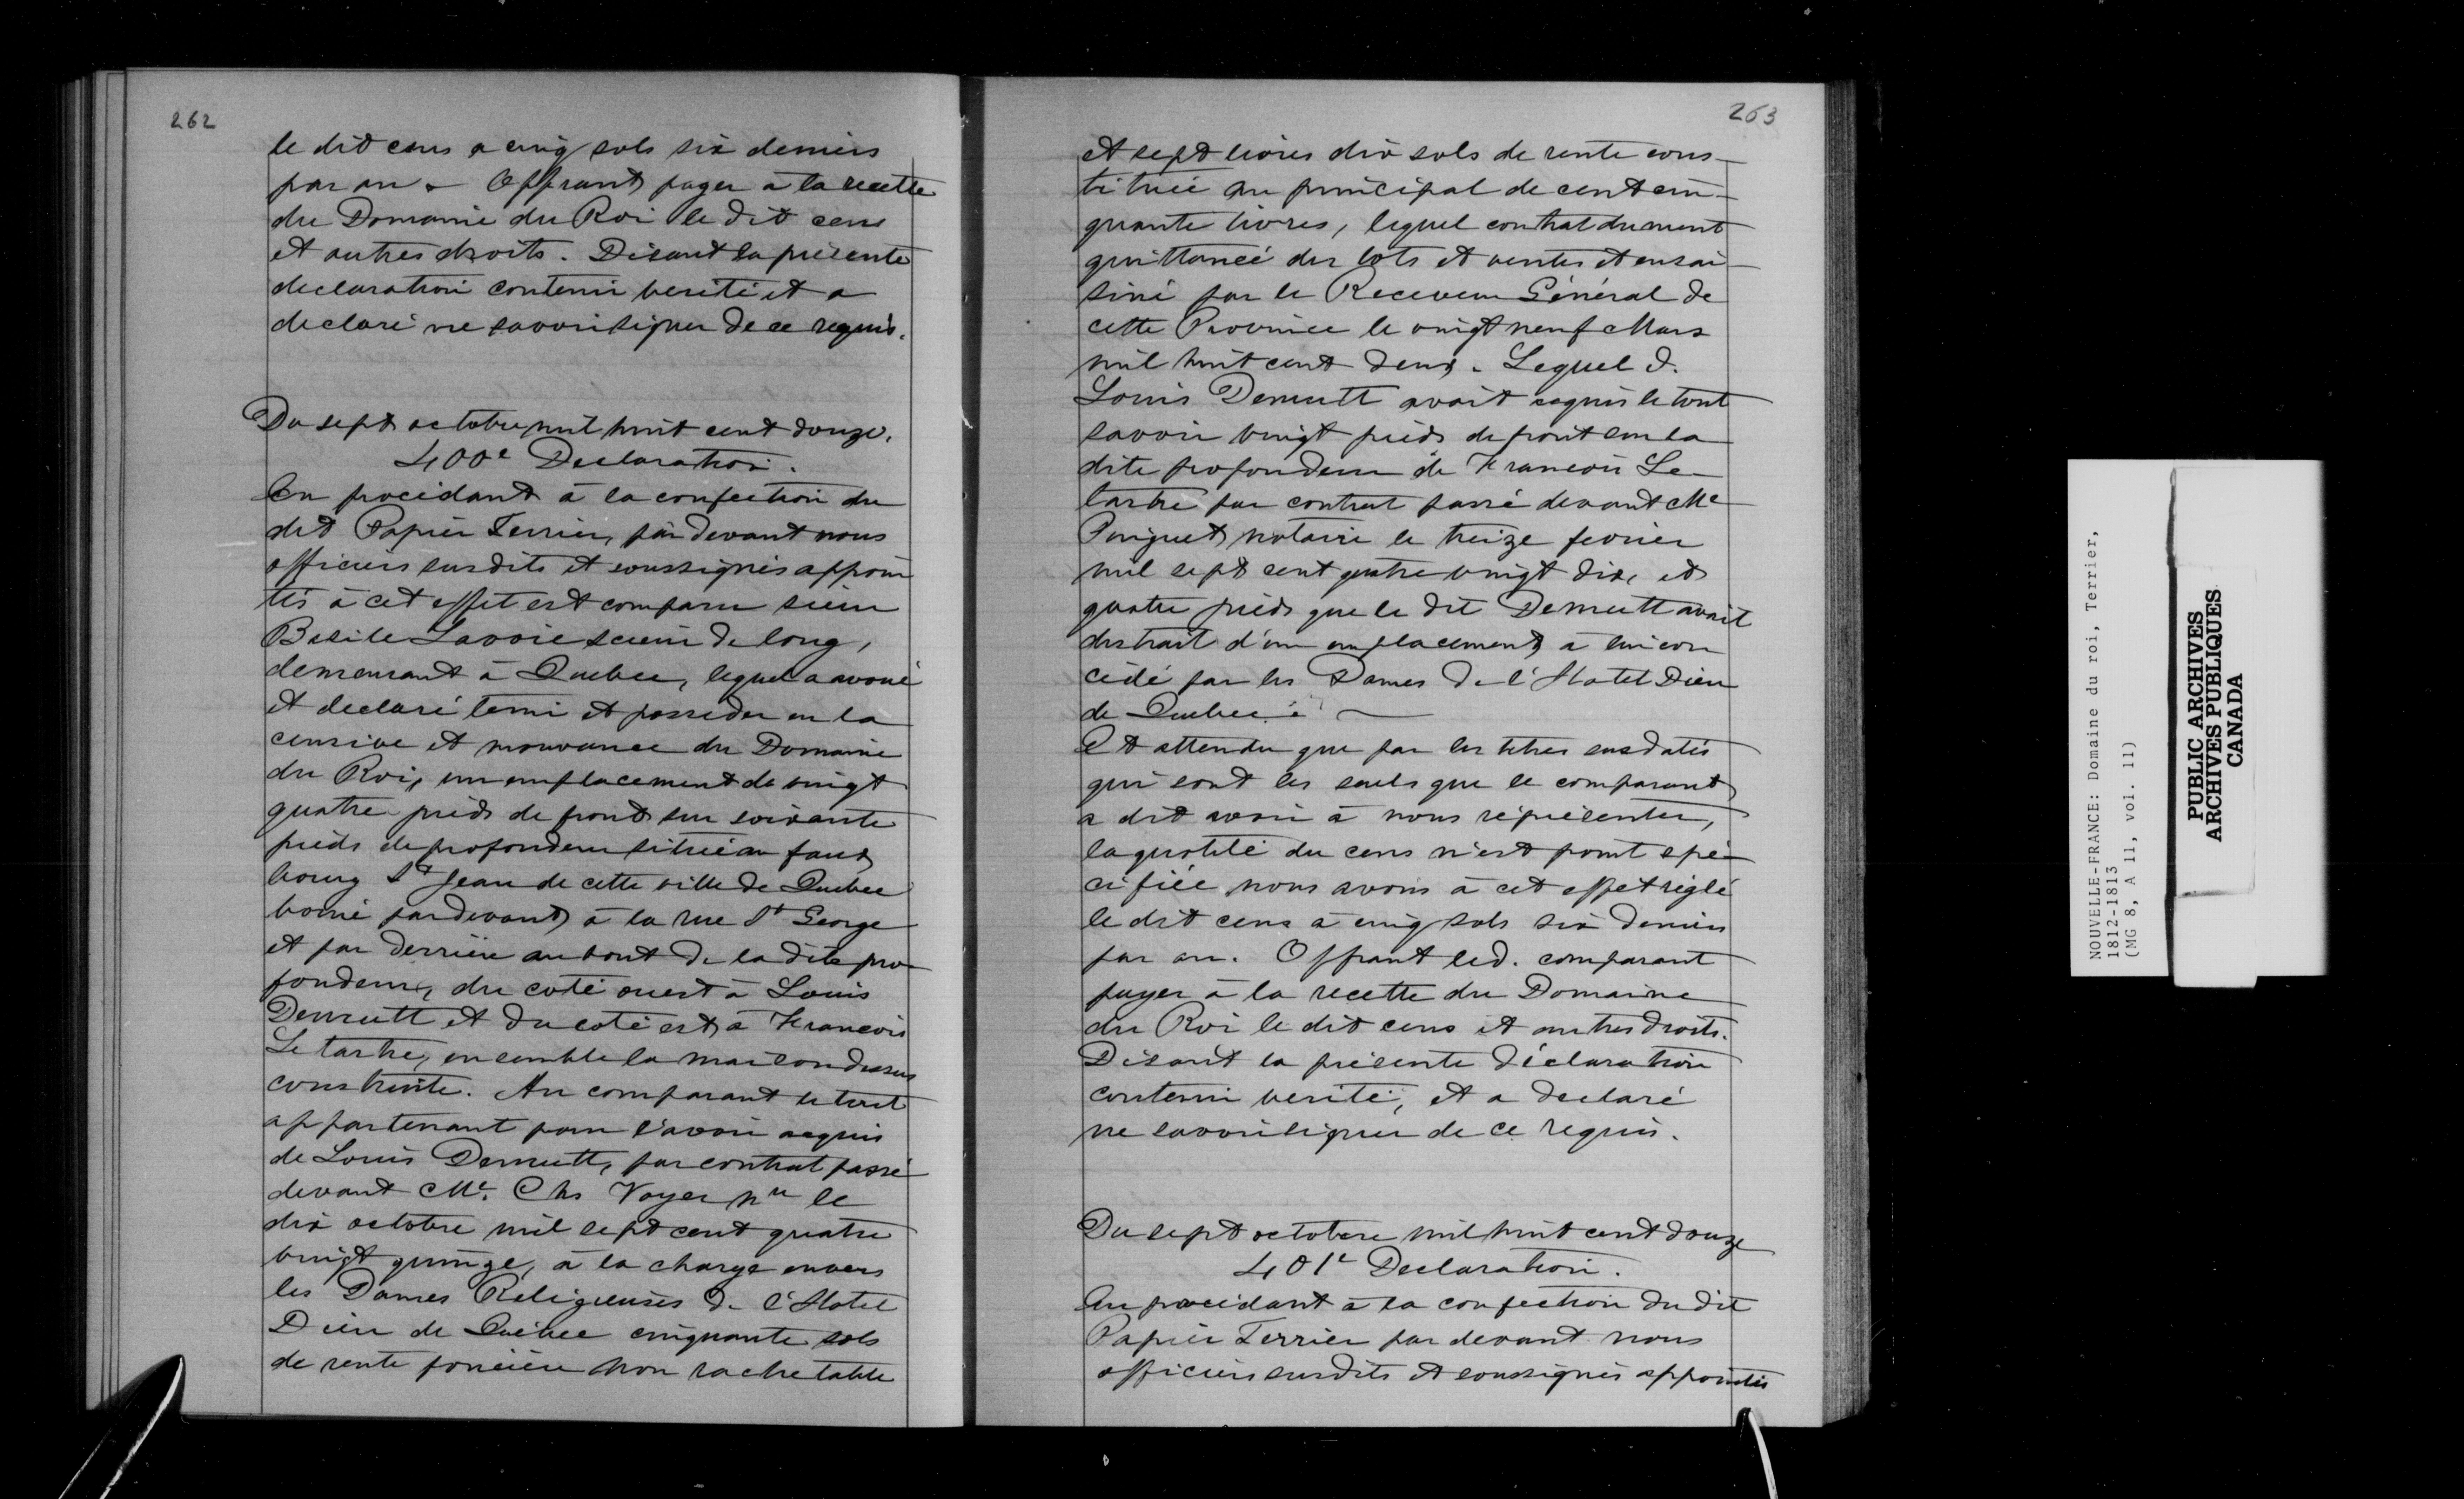 262
le dit cens a cinq sols six deniers
par an. Offrant payer à la recette
du Domaine du Roi le dit cens
et autres droits. Disant la présente
declaration contenir verité et a
declaré ne savoir signer de ce requis.
Du sept octobre mil huit cent douze.
400e Declaration.
En procédant à la confection du
dit Papier Terrier, par devant nous
officiers susdits et soussignés appoin
tés à cet effet est comparu sieur
Basile Lavoie scieur de long,
demeurant à Quebec, lequel a avoué
et declaré tenir et posseder en la
censive et mouvance du Domaine
du Roi, un emplacement de vingt
quatre pieds de front sur soixante
pieds de profondeur situé au faux
bourg St Jean de cette ville de Quebec
borné pardevant à la rue St George
et par derrière au bout de la dite pro
fondeur, du coté ouest à Louis
Demutt et du coté est à Francois
Letartre, ensemble la maison dessus
construite. Au comparant le tout
appartenant pour l'avoir acquis
de Louis Demutt, par contrat passé
devant Me. Chs Voyer nre le
dix octobre mil sept cent quatre
vingt quinze, à la charge envers
les Dames Religieuses de l'Hotel
Dieu de Québec cinquante sols
de rente foncière non rachetable
263
et sept livres dix sols de rente cons-
tituée au principal de cent cin-
quante livres, lequel contrat dument
quittancé des lots et ventes et ensai-
siné par le Receveur Général de
cette Province le vingt neuf Mars
mil huit cent deux. Lequel d.
Louis Demutt avait acquis le tout
savoir vingt pieds de front sur la
dite profondeur de Francois Le-
tartre par contrat passé devant Me
Pinguet notaire le treize fevrier
mil sept cent quatre vingt dix, et
quatre pieds que le dit Demutt avait
distrait d'un emplacement à lui con
cédé par les Dames de l'Hotel Dieu
de Quebec.
Et attendu que par les titres susdatés
qui sont les seuls que le comparant
a dit avoir à nous réprésenter,
la quotité du cens n'est point spé-
cifiée nous avons à cet effet réglé
le dit cens à cinq sols six deniers
par an. Offrant led. comparant
payer à la recette du Domaine
du Roi le dit cens et autres droits.
Disant la présente déclaration
contenir verité, et a declaré
ne savoir signer de ce requis.
Du sept octobre mil huit cent douze
401e Declaration.
En procédant à la confection du dit
Papier Terrier par devant nous
officiers susdits et soussignés appointés
NOUVELLE-FRANCE: Domaine du roi, Terrier,
1812-1813
(MG 8, A 11, vol. 11)
PUBLIC ARCHIVES
ARCHIVES PUBLIQUES
CANADA